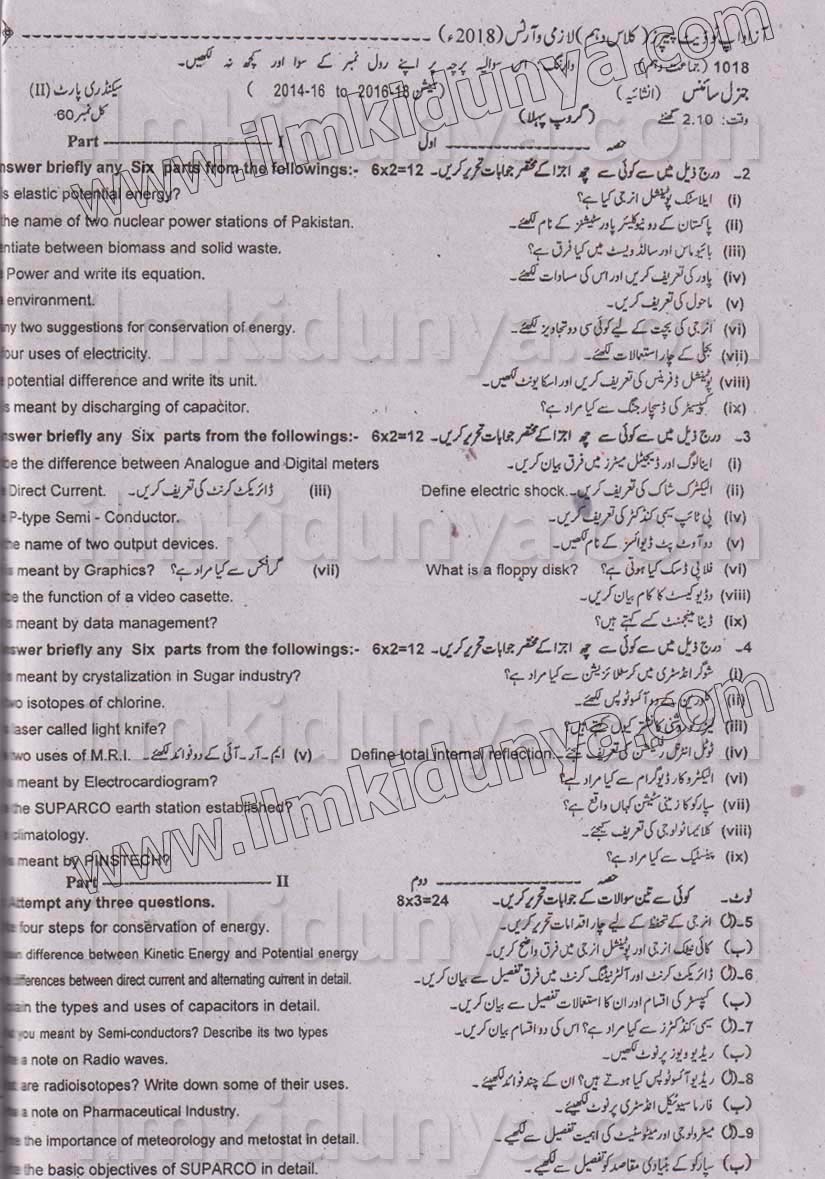 اپ ٹو ڈیٹ پیپرز (کلاس دہم) لازمی و آرٹس (2018ء)
1018 (جماعت دہم) وارننگ: اس سوالیہ پرچہ پر اپنے رول نمبر کے سوا اور کچھ نہ لکھیں۔
جنرل سائنس (انشائیہ) (سیشن 2014-16 to 2016-18) سیکنڈری پارٹ (II)
وقت: 2.10 گھنٹے (گروپ پہلا) کل نمبر 60
حصہ اول Part I
2۔ درج ذیل میں سے کوئی سے چھ اجزا کے مختصر جوابات تحریر کریں۔ 6x2=12 nswer briefly any Six parts from the followings:-
(i) ایلاسٹک پوٹینشل انرجی کیا ہے؟ s elastic potential energy?
(ii) پاکستان کے دو نیوکلیئر پاور سٹیشنز کے نام لکھئے۔ the name of two nuclear power stations of Pakistan.
(iii) بائیوماس اور سالڈ ویسٹ میں کیا فرق ہے؟ entiate between biomass and solid waste.
(iv) پاور کی تعریف کریں اور اس کی مساوات لکھئے۔ Power and write its equation.
(v) ماحول کی تعریف کریں۔ environment.
(vi) انرجی کی بچت کے لیے کوئی سی دو تجاویز لکھئے۔ ny two suggestions for conservation of energy.
(vii) بجلی کے چار استعمالات لکھئے۔ our uses of electricity.
(viii) پوٹینشل ڈفرینس کی تعریف کریں اور اسکا یونٹ لکھیں۔ potential difference and write its unit.
(ix) کپیسٹر کی ڈسچارجنگ سے کیا مراد ہے؟ s meant by discharging of capacitor.
3۔ درج ذیل میں سے کوئی سے چھ اجزا کے مختصر جوابات تحریر کریں۔ 6x2=12 nswer briefly any Six parts from the followings:-
(i) اینالوگ اور ڈیجیٹل میٹرز میں فرق بیان کریں۔ be the difference between Analogue and Digital meters
(ii) الیکٹرک شاک کی تعریف کریں۔ Define electric shock. (iii) ڈائریکٹ کرنٹ کی تعریف کریں۔ Direct Current.
(iv) پی ٹائپ سیمی کنڈکٹر کی تعریف کریں۔ P-type Semi - Conductor.
(v) دو آؤٹ پٹ ڈیوائسز کے نام لکھیں۔ he name of two output devices.
(vi) فلاپی ڈسک کیا ہوتی ہے؟ What is a floppy disk? (vii) گرافکس سے کیا مراد ہے؟ s meant by Graphics?
(viii) وڈیو کیسٹ کا کام بیان کریں۔ be the function of a video casette.
(ix) ڈیٹا مینجمنٹ کسے کہتے ہیں؟ s meant by data management?
4۔ درج ذیل میں سے کوئی سے چھ اجزا کے مختصر جوابات تحریر کریں۔ 6x2=12 swer briefly any Six parts from the followings:-
(i) شوگر انڈسٹری میں کرسٹلائزیشن سے کیا مراد ہے؟ s meant by crystalization in Sugar industry?
(ii) کلورین کے دو آئسوٹوپس لکھئے۔ wo isotopes of chlorine.
(iii) لیزر کو روشنی کا نشتر کیوں کہتے ہیں؟ laser called light knife?
(iv) ٹوٹل انٹرنل ریفلیکشن کی تعریف کیجئے۔ Define total internal reflection. (v) ایم۔آر۔آئی کے دو فوائد لکھئے۔ two uses of M.R.I.
(vi) الیکٹرو کارڈیوگرام سے کیا مراد ہے؟ s meant by Electrocardiogram?
(vii) سپارکو کا زمینی سٹیشن کہاں واقع ہے؟ the SUPARCO earth station established?
(viii) کلائیمیٹولوجی کی تعریف کیجئے۔ climatology.
(ix) پینسٹیک سے کیا مراد ہے؟ s meant by PINSTECH?
حصہ دوم Part II
نوٹ۔ کوئی سے تین سوالات کے جوابات تحریر کریں۔ 8x3=24 Attempt any three questions.
5۔(ا) انرجی کے تحفظ کے لیے چار اقدامات تحریر کریں۔ four steps for conservation of energy.
(ب) کائی نیٹک انرجی اور پوٹینشل انرجی میں فرق واضح کریں۔ difference between Kinetic Energy and Potential energy
6۔(ا) ڈائریکٹ کرنٹ اور آلٹرنیٹنگ کرنٹ میں فرق تفصیل سے بیان کریں۔ differences between direct current and alternating current in detail.
(ب) کپیسٹر کی اقسام اور ان کا استعمالات تفصیل سے بیان کریں۔ in the types and uses of capacitors in detail.
7۔(ا) سیمی کنڈکٹرز سے کیا مراد ہے؟ اس کی دو اقسام بیان کریں۔ you meant by Semi-conductors? Describe its two types
(ب) ریڈیو ویوز پر نوٹ لکھیں۔ a note on Radio waves.
8۔(ا) ریڈیو آئسوٹوپس کیا ہوتے ہیں؟ ان کے چند فوائد لکھیئے۔ are radioisotopes? Write down some of their uses.
(ب) فارماسیوٹیکل انڈسٹری پر نوٹ لکھیئے۔ a note on Pharmaceutical Industry.
9۔(ا) میٹرولوجی اور میٹوسٹیٹ کی اہمیت تفصیل سے لکھیئے۔ the importance of meteorology and metostat in detail.
(ب) سپارکو کے بنیادی مقاصد کو تفصیل سے لکھیے۔ the basic objectives of SUPARCO in detail.
www.ilmkidunya.com
www.ilmkidunya.com
ilmkidunya.com
ilmkidunya.com
ilmkidunya.com
ilmkidunya.com
ilmkidunya.com